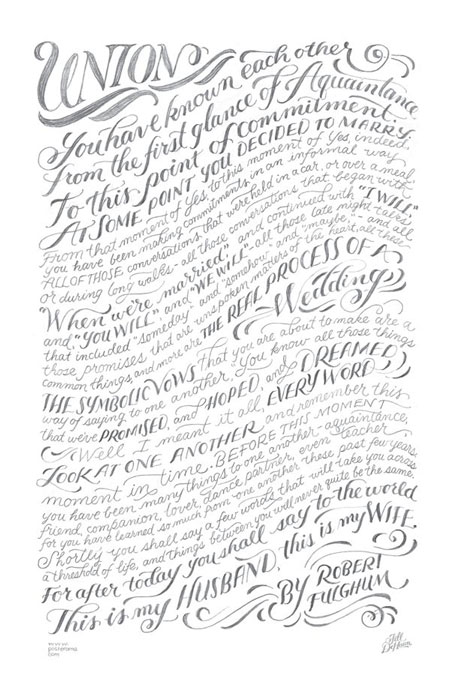 UNION
You have known each other
from the first glance of Aquaintance
To this point of commitment.
AT SOME POINT YOU DECIDED TO MARRY.
From that moment of Yes, to this moment of Yes, indeed,
you have been making commitments, in an informal way.
ALL OF THOSE conversations that were held in a car, or over a meal,
or during long walks - all those conversations that began with
"When we're married" and continued with "I WILL"
and "YOU WILL" and "WE WILL" - all those late night talks
that included "someday" and "somehow" and "maybe" - and all
those promises that are unspoken matters of the heart, all these
common things, and more are THE REAL PROCESS OF A
Wedding
THE SYMBOLIC VOWS that you are about to make are a
way of saying to one another, "You know all those things
that we're PROMISED, and HOPED, and DREAMED
Well I meant it all, EVERY WORD
LOOK AT ONE ANOTHER and remember this
moment in time. BEFORE THIS MOMENT
you have been many things to one another - aquaintance,
friend, companion, lover, dance partner, even teacher
for you have learned so much from one another these past few years.
Shortly you shall say a few words that will take you across
a threshold of life, and things between you will never quite be the same.
For after today you shall say to the world
This is my HUSBAND, this is my WIFE.
BY ROBERT
FULGHUM
Jill
DeHaan